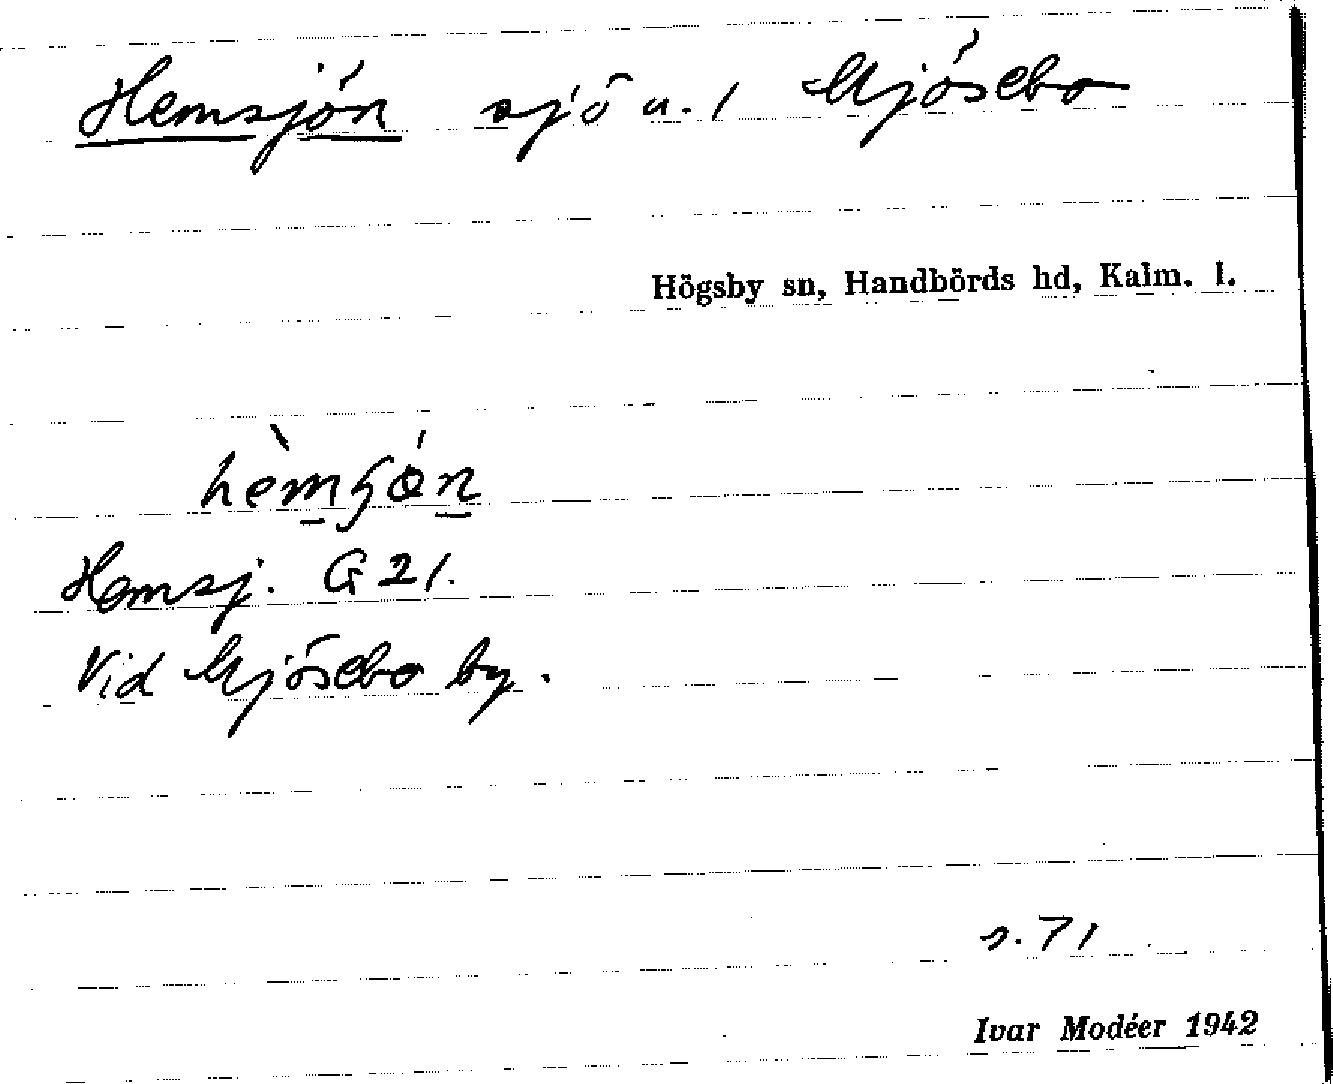 Hemsjön sjö u. 1 Mjösebo
Högsby sn, Handbörds hd, Kalm. l.
Hemsj. G 21.
Vid Mjösebo by.
s. 71
Ivar Modéer 1942